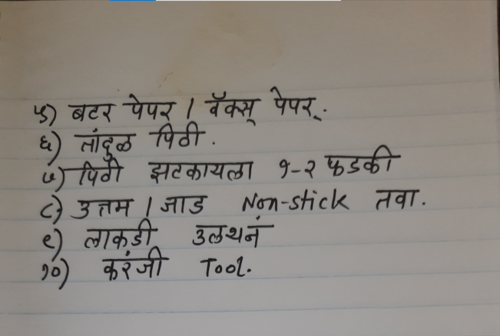 ५) बटर पेपर / वॅक्स् पेपर.
६) तांदुळ पिठी.
७) पिठी झटकायला १-२ फडकी
८) उत्तम / जाड Non-stick तवा.
९) लाकडी उलथनं
१०) करंजी Tool.